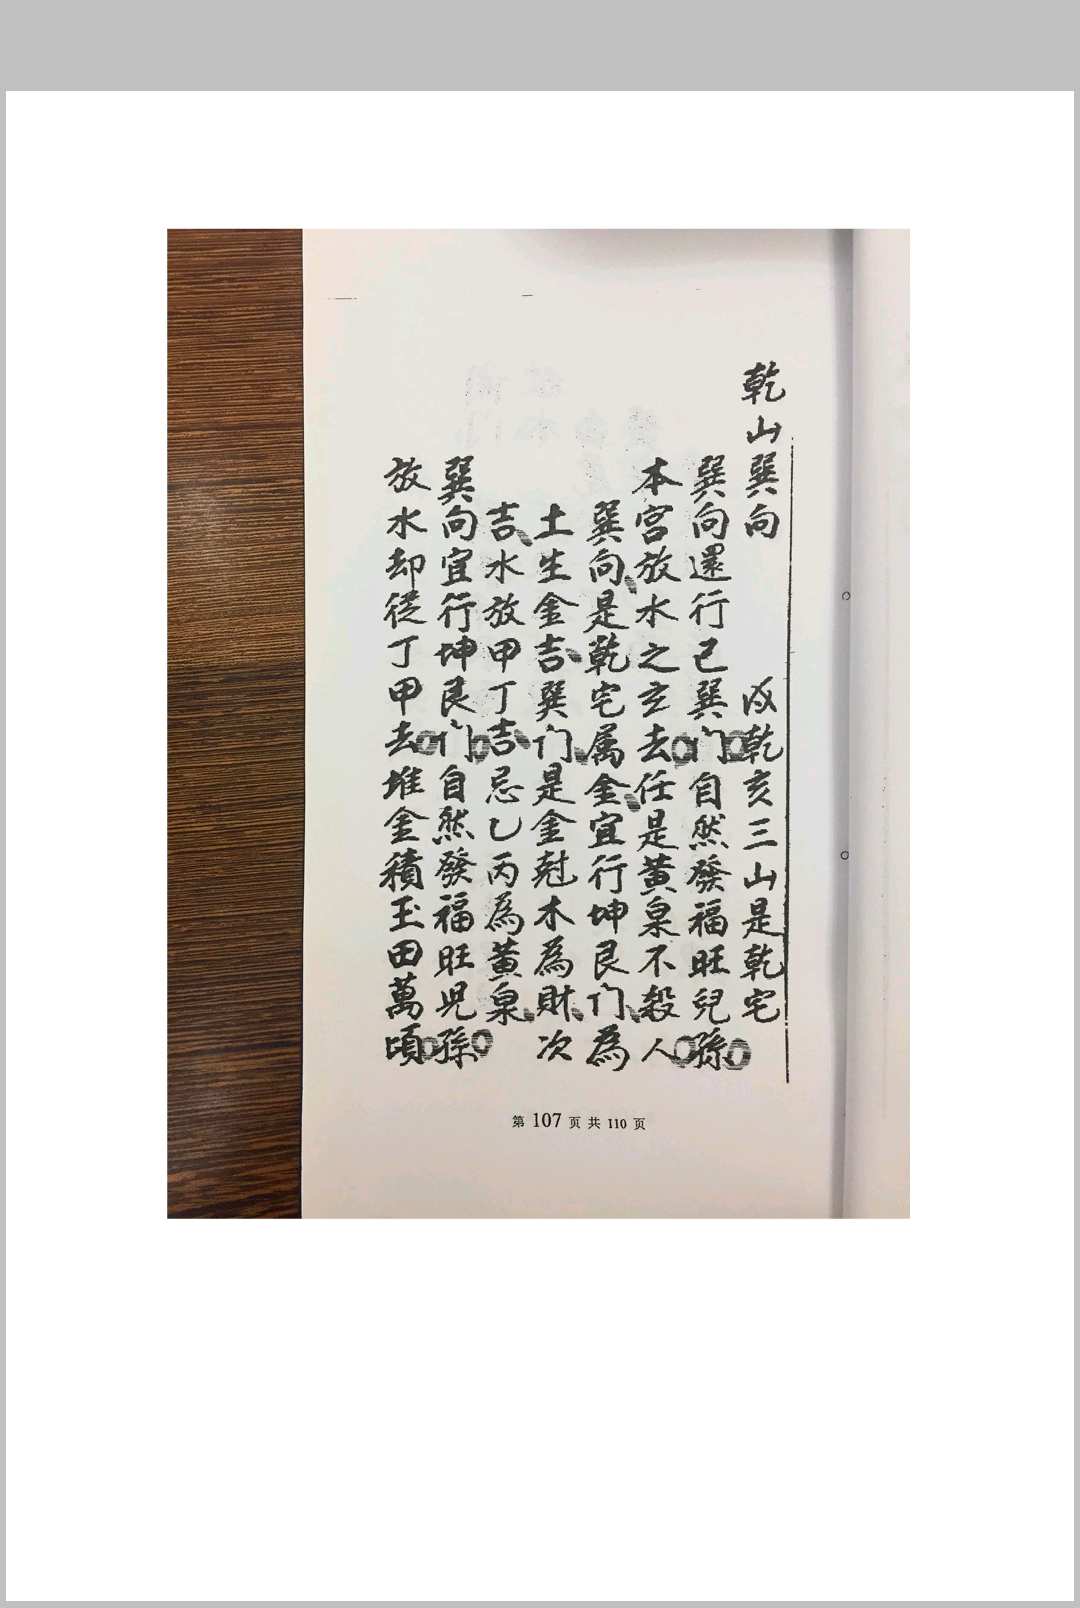 乾山巽向 戌乾亥三山是乾宅
巽向還行己巽门自然發福旺兒孫
本宮放水之玄去任是黄泉不殺人
巽向是乾宅属金宜行坤艮门為
土生金吉巽门是金尅木為財次
吉水放甲丁吉忌乙丙為黄泉
巽向宜行坤艮门自然發福旺児孫
放水却従丁甲去堆金積玉田萬頃
第 107 页 共 110 页